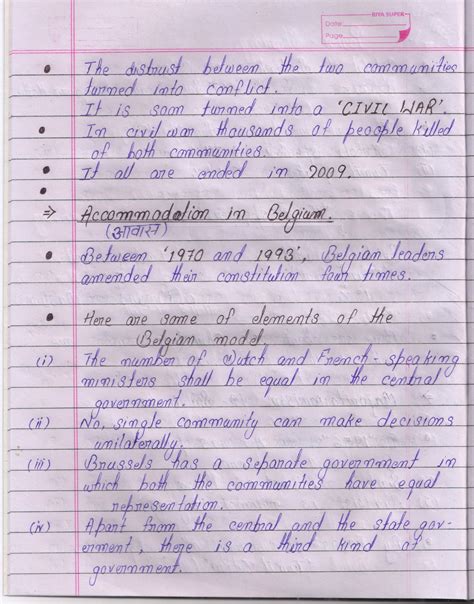 RIYA SUPER
Date
Page
The distrust between the two communities
turned into conflict.
It is soon turned into a 'CIVIL WAR'.
In civil war thousands of people killed
of both communities.
It all are ended in 2009.
⇒ Accommodation in Belgium.
(आवास)
Between '1970 and 1993', Belgian leaders
amended their constitution four times.
Here are some of elements of the
Belgian model.
(i) The number of Dutch and French-speaking
ministers shall be equal in the central
government.
(ii) No, single community can make decisions
unilaterally.
(iii) Brussels has a separate government in
which both the communities have equal
representation.
(iv) Apart from the central and the state gov-
ernment, there is a third kind of
government.